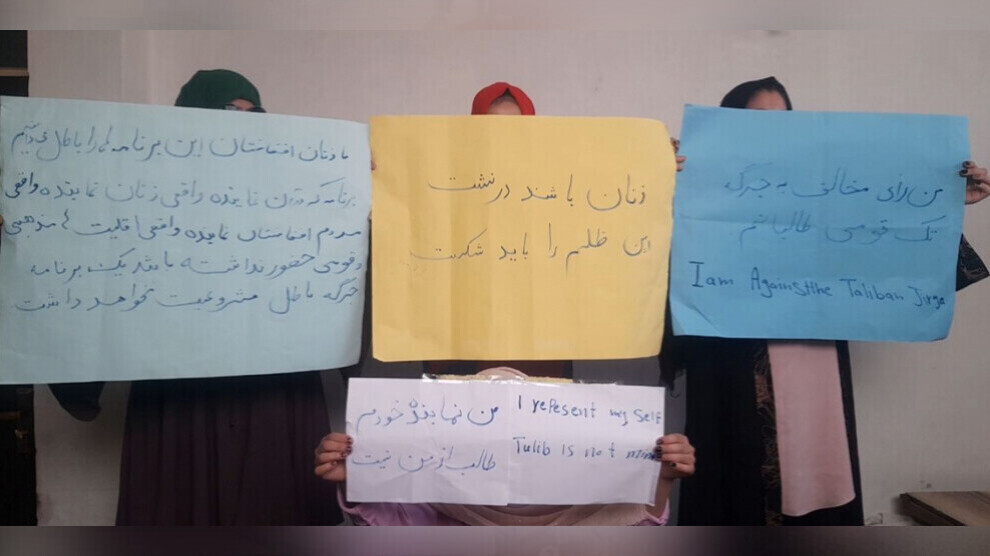 ما زنان افغانستان این برنامه ها را باطل میدانیم
برنامه که در آن نماینده واقعی زنان نماینده واقعی
مردم افغانستان نماینده واقعی اقلیت های مذهبی
و قومی حضور نداشته باشد یک برنامه
جرگه باطل مشروعیت نخواهد داشت
زنان باشند در نشست
این ظلم را باید شکست
من رای مخالف به جرگه
تک قومی طالبا
I am Against the Taliban Jirga
من نماینده خودم
طالب از من نیست
I repesent my self
Tulib is not